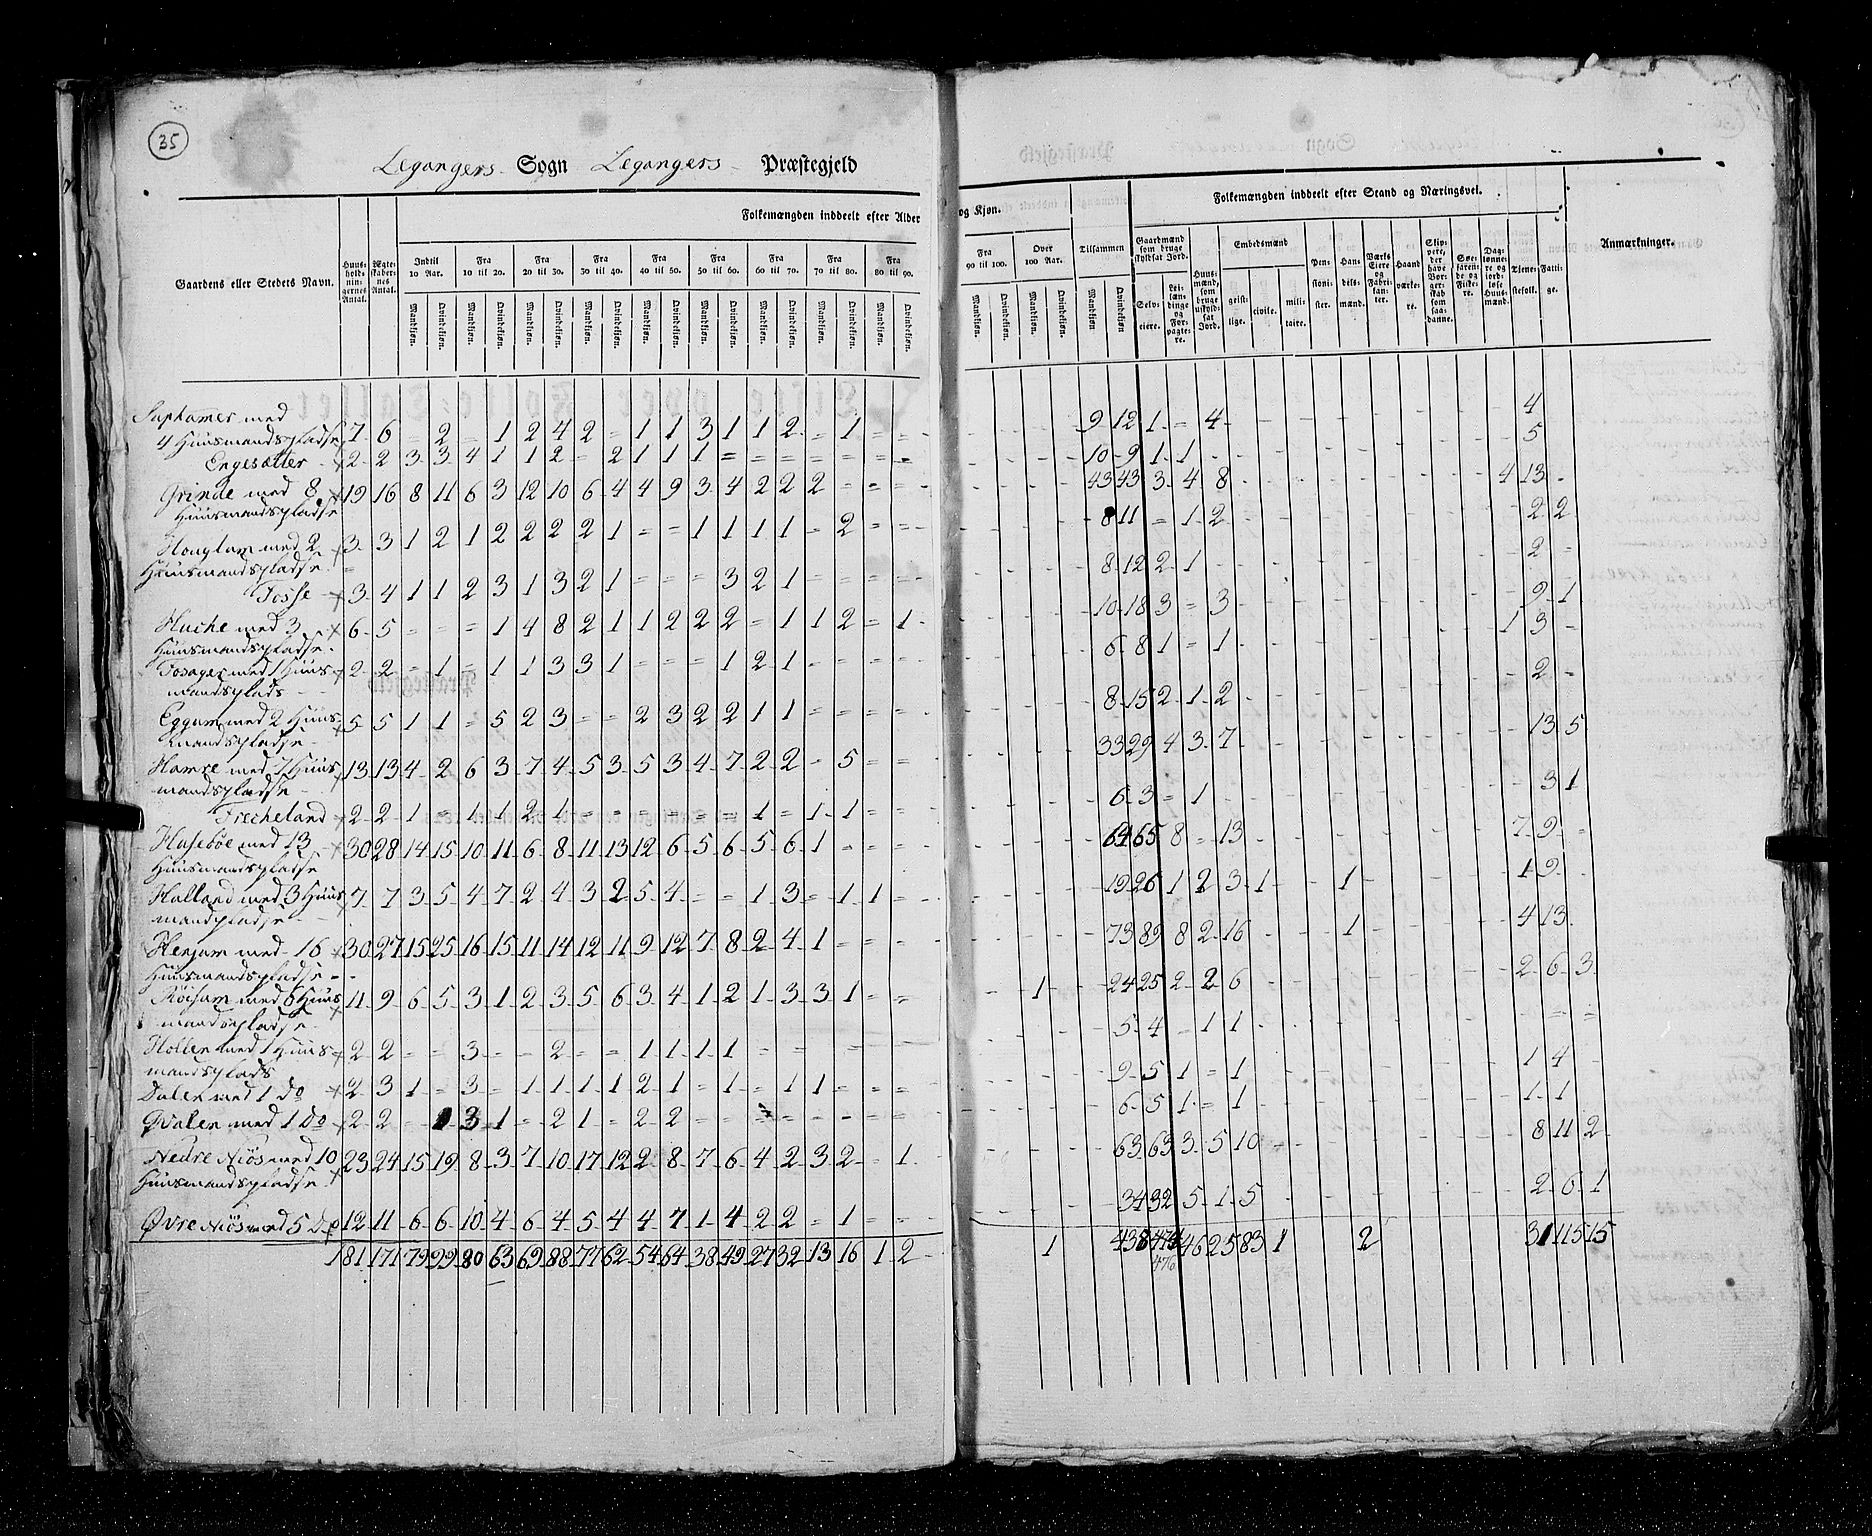 35
Legangers Sogn Legangers Præstegjeld
Gaardens eller Stedets Navn.
Huus-
hold-
nin-
gernes
Antal.
Ægte-
skaber-
nes
Antal.
Folkemængden inddeelt efter Alder
Indtil
10 Aar.
Fra
10 til 20.
Fra
20 til 30.
Fra
30 til 40.
Fra
40 til 50.
Fra
50 til 60.
Fra
60 til 70.
Fra
70 til 80.
Fra
80 til 90.
Mandkjøn. Qvindekjøn. Mandkjøn. Qvindekjøn. Mandkjøn. Qvindekjøn. Mandkjøn. Qvindekjøn. Mandkjøn. Qvindekjøn. Mandkjøn. Qvindekjøn. Mandkjøn. Qvindekjøn. Mandkjøn. Qvindekjøn. Mandkjøn. Qvindekjøn.
og Kjøn.
Fra
90 til 100.
Over
100 Aar.
Tilsammen
Mandkjøn. Qvindekjøn. Mandkjøn. Qvindekjøn. Mandkjøn Qvindekjøn
Folkemængden inddeelt efter Stand og Næringsvei.
Gaardmænd
som bruge
skyldsat Jord.
Selv-
eiere.
Lei-
læn-
dinge
og
For-
pagte-
re.
Huus-
mænd,
som
bruge
uskyld-
sat
Jord.
Embedsmænd
geist-
lige.
civile.
mili-
taire.
Pen-
sioni-
ster.
Han-
dels-
mænd.
Værks
Eiere
og
Fabri-
can-
ter.
Haand
værke-
re.
Slip-
pere,
der
have
Bor-
ger-
skab
som
saa-
danne.
Søe-
faren-
de og
Fiske-
re.
Dag-
lønne-
re og
jord-
løse
Huus-
mænd.
Tjene-
stefolk.
Fatti-
ge.
Anmærkninger.
Suphamer med
4 Huusmandspladse 7 6 = 2 = 1 2 4 2 = 1 1 3 1 1 2 = 1 = = 9 12 1 = 4 4
Engesætter 2 2 3 3 4 1 1 2 = 2 1 1 1 = = = = = = = 10 9 1 1 5
Grinde med 8 19 16 8 11 6 3 12 10 6 4 4 9 3 4 2 2 2 = = = 43 43 3 4 8 4 13
Huusmandspladse
Houglum med 2 3 3 1 2 1 2 2 2 2 1 = = 1 1 1 1 = 2 = = 8 11 = 1 2 2 2
Huusmandspladse
Fosse 3 4 1 1 2 3 1 3 2 1 = = = 3 2 1 = = = = 8 12 2 1 2 =
Huche med 3 6 5 = = = 1 4 8 2 1 1 2 2 2 = 1 1 2 = 1 10 18 3 = 3 9 1
Huusmandspladse
Fosager med 1 Huus- 2 2 = 1 = 1 1 3 3 1 = = = 1 2 1 = = = = 6 8 1 = 1 1 3
mandsplads
Eggum med 2 Huus- 5 5 1 1 = 5 2 3 = = 2 3 2 2 1 1 = = = = 8 15 2 1 2 2 =
mandspladse
Hamre med 7 Huus 13 13 4 2 6 3 7 4 5 3 5 3 4 7 2 2 = 5 = = 33 29 4 3 7 13 5
mandspladse
Frecheland 2 2 1 = 1 1 2 1 = = = = = = 1 = 1 1 = = 6 3 = 1 3 1
Husebøe med 13 30 28 14 15 10 11 6 8 11 13 12 6 5 6 5 6 1 = = = 64 65 8 = 13 7 9 =
Huusmandspladse
Halland med 3 Huus 7 7 3 5 4 7 2 4 3 2 5 4 = = 1 3 = 1 1 = 19 26 1 2 3 1 1 1 9
mandspladse
Henjum med 16 30 27 15 25 16 15 11 14 12 11 9 12 7 8 2 4 1 = = = 73 89 8 2 16 1 4 13
Huusmandspladse
Røisum med 6 Huus 11 9 6 5 3 1 2 3 5 6 3 4 1 2 1 3 3 1 = = 1 24 25 2 2 6 2 6 3
mandspladse
Holten med 1 Huus 2 2 = = 3 = = 2 = = 1 1 1 1 = = = = 5 4 = 1 1 = =
mandsplads
Dalen med 1 do 2 3 1 = 3 = 1 1 1 1 2 1 = 1 = 1 1 = = = 9 5 1 = 1 1 4
Qvalen med 1 do 2 2 = 3 1 = 2 1 = 2 2 = = = = = = = 6 5 1 = 1 1 1
Nedre Niøs med 10 23 24 15 19 8 3 7 10 17 12 2 8 7 6 4 2 3 2 = 1 63 63 3 5 10 8 11 2
Huusmandspladse
Øvre Niøs med 5 Do 12 11 6 6 10 4 6 4 5 4 4 7 1 4 2 2 = 1 = = 34 32 5 1 5 2 6 1
181 171 79 99 80 63 69 88 77 62 54 64 38 49 27 32 13 16 1 2 1 438 474 46 25 83 1 2 31 115 15
476